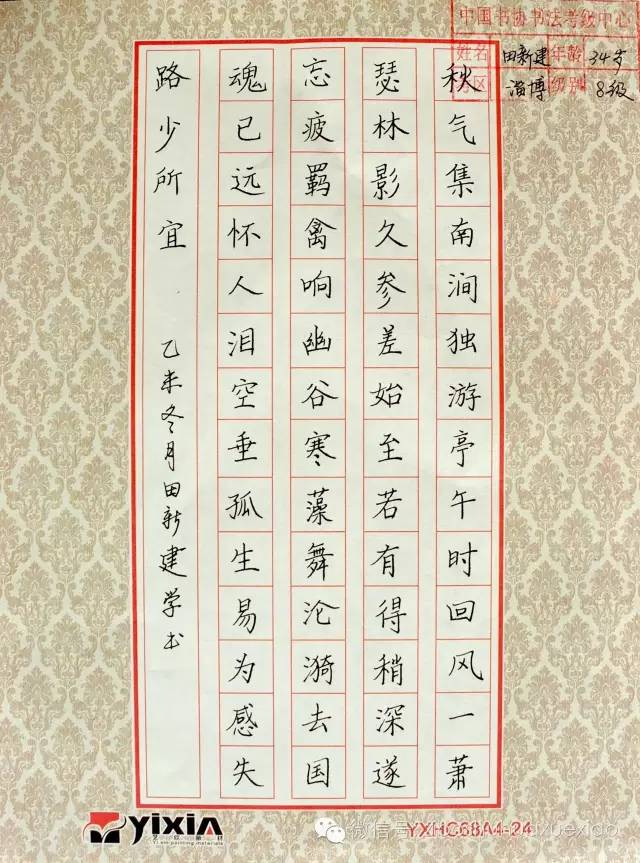 中国书协书法考级中心
姓名 田新建 年龄 34岁
考区 淄博 级别 8级
秋气集南涧独游亭午时回风一萧
瑟林影久参差始至若有得稍深遂
忘疲羁禽响幽谷寒藻舞沦漪去国
魂已远怀人泪空垂孤生易为感失
路少所宜
乙未冬月田新建学书
YIXIN
Yi xin painting materials
YXHC68A4-24
微信号